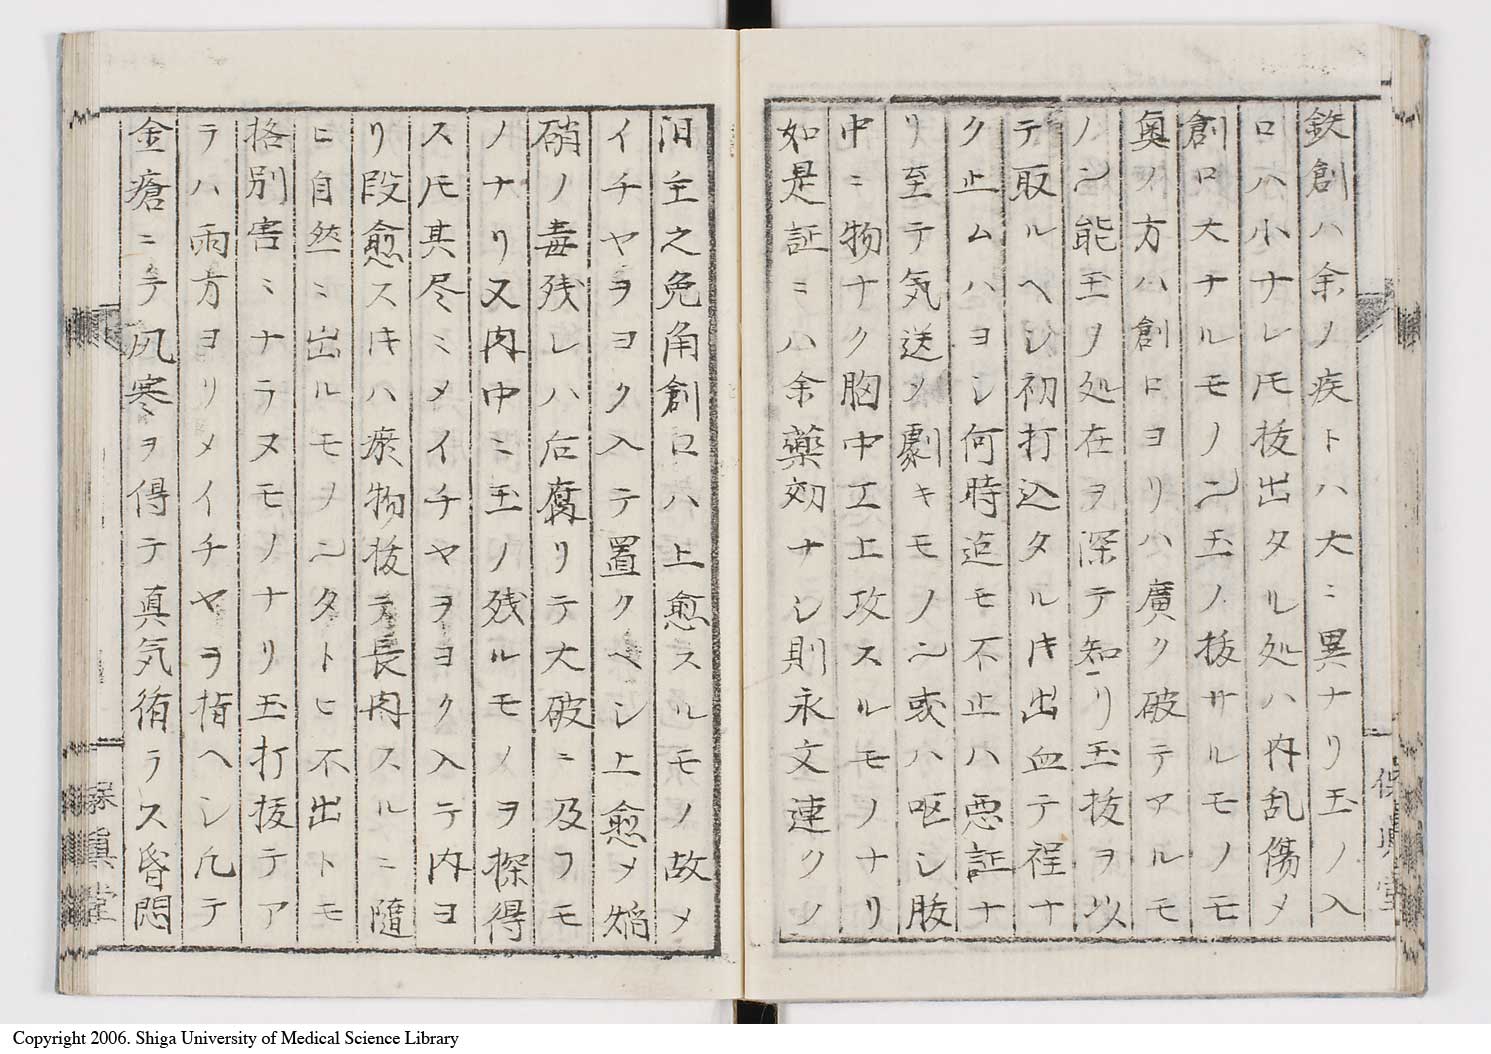 鉃創ハ余ノ疾トハ大ニ異ナリ玉ノ入
口ハ小ナレ𪜈抜出タル処ハ内乱傷メ
創口大ナルモノ𬼀玉ノ抜サルモノモ
奥ノ方ハ創口ヨリハ廣ク破テアルモ
ノ𬼀能玉ノ処在ヲ深テ知リ玉抜ヲ以
テ取ルヘシ初打込タル𪜈出血テ程ナ
ク止ムハヨシ何時迠モ不止ハ悪証ナ
リ至テ気送メ劇キモノ𬼀或ハ呕シ腹
中ニ物ナク胸中エ上攻スルモノナリ
如是証ミハ余藥効ナシ則永文連クノ
汨主之免角創口ハ上愈スルモノ故メ
イチヤヲヨク入テ置クヘシ上愈メ焔
硝ノ毒残レハ后腐リテ大破ニ及フモ
ノナリ又肉中ミ玉ノ残ルモメヲ探得
ス𪜈其尽ミメイチヤヲヨク入テ内ヨ
リ段愈スキハ瘀物抜テ長肉スルニ随
ヒ自然ミ出ルモノ𬼀タトヒ不出トモ
格別害ミナラヌモノナリ玉打抜テア
ラハ両方ヨリメイチヤヲ指ヘシ凢テ
金瘡ニテ凨寒ヲ得テ真気循ラス昏悶
保真堂
保眞堂
Copyright 2006. Shiga University of Medical Science Library